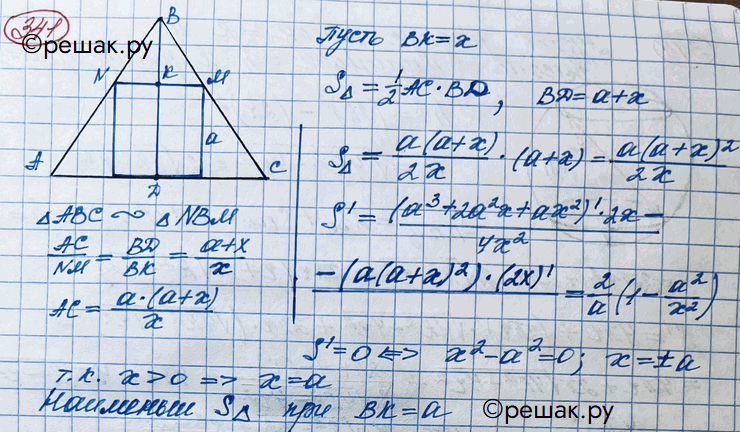 341
©решак.ру
B
N K M
a
A D C
△ABC ∾ △NBM
AC/NM = BD/BK = a+x/x
AC = a·(a+x)/x
Пусть BK=x
S△ = 1/2 AC·BD, BD=a+x
S△ = a(a+x)/2x · (a+x) = a(a+x)²/2x
S' = (a³+2a²x+ax²)'·2x−/4x²
−(a(a+x)²)·(2x)'/ = 2/a (1−a²/x²)
S'=0 <=> x²−a²=0; x=±a
т.к. x>0 => x=a
Наименьш S△ при BK=a
©решак.ру